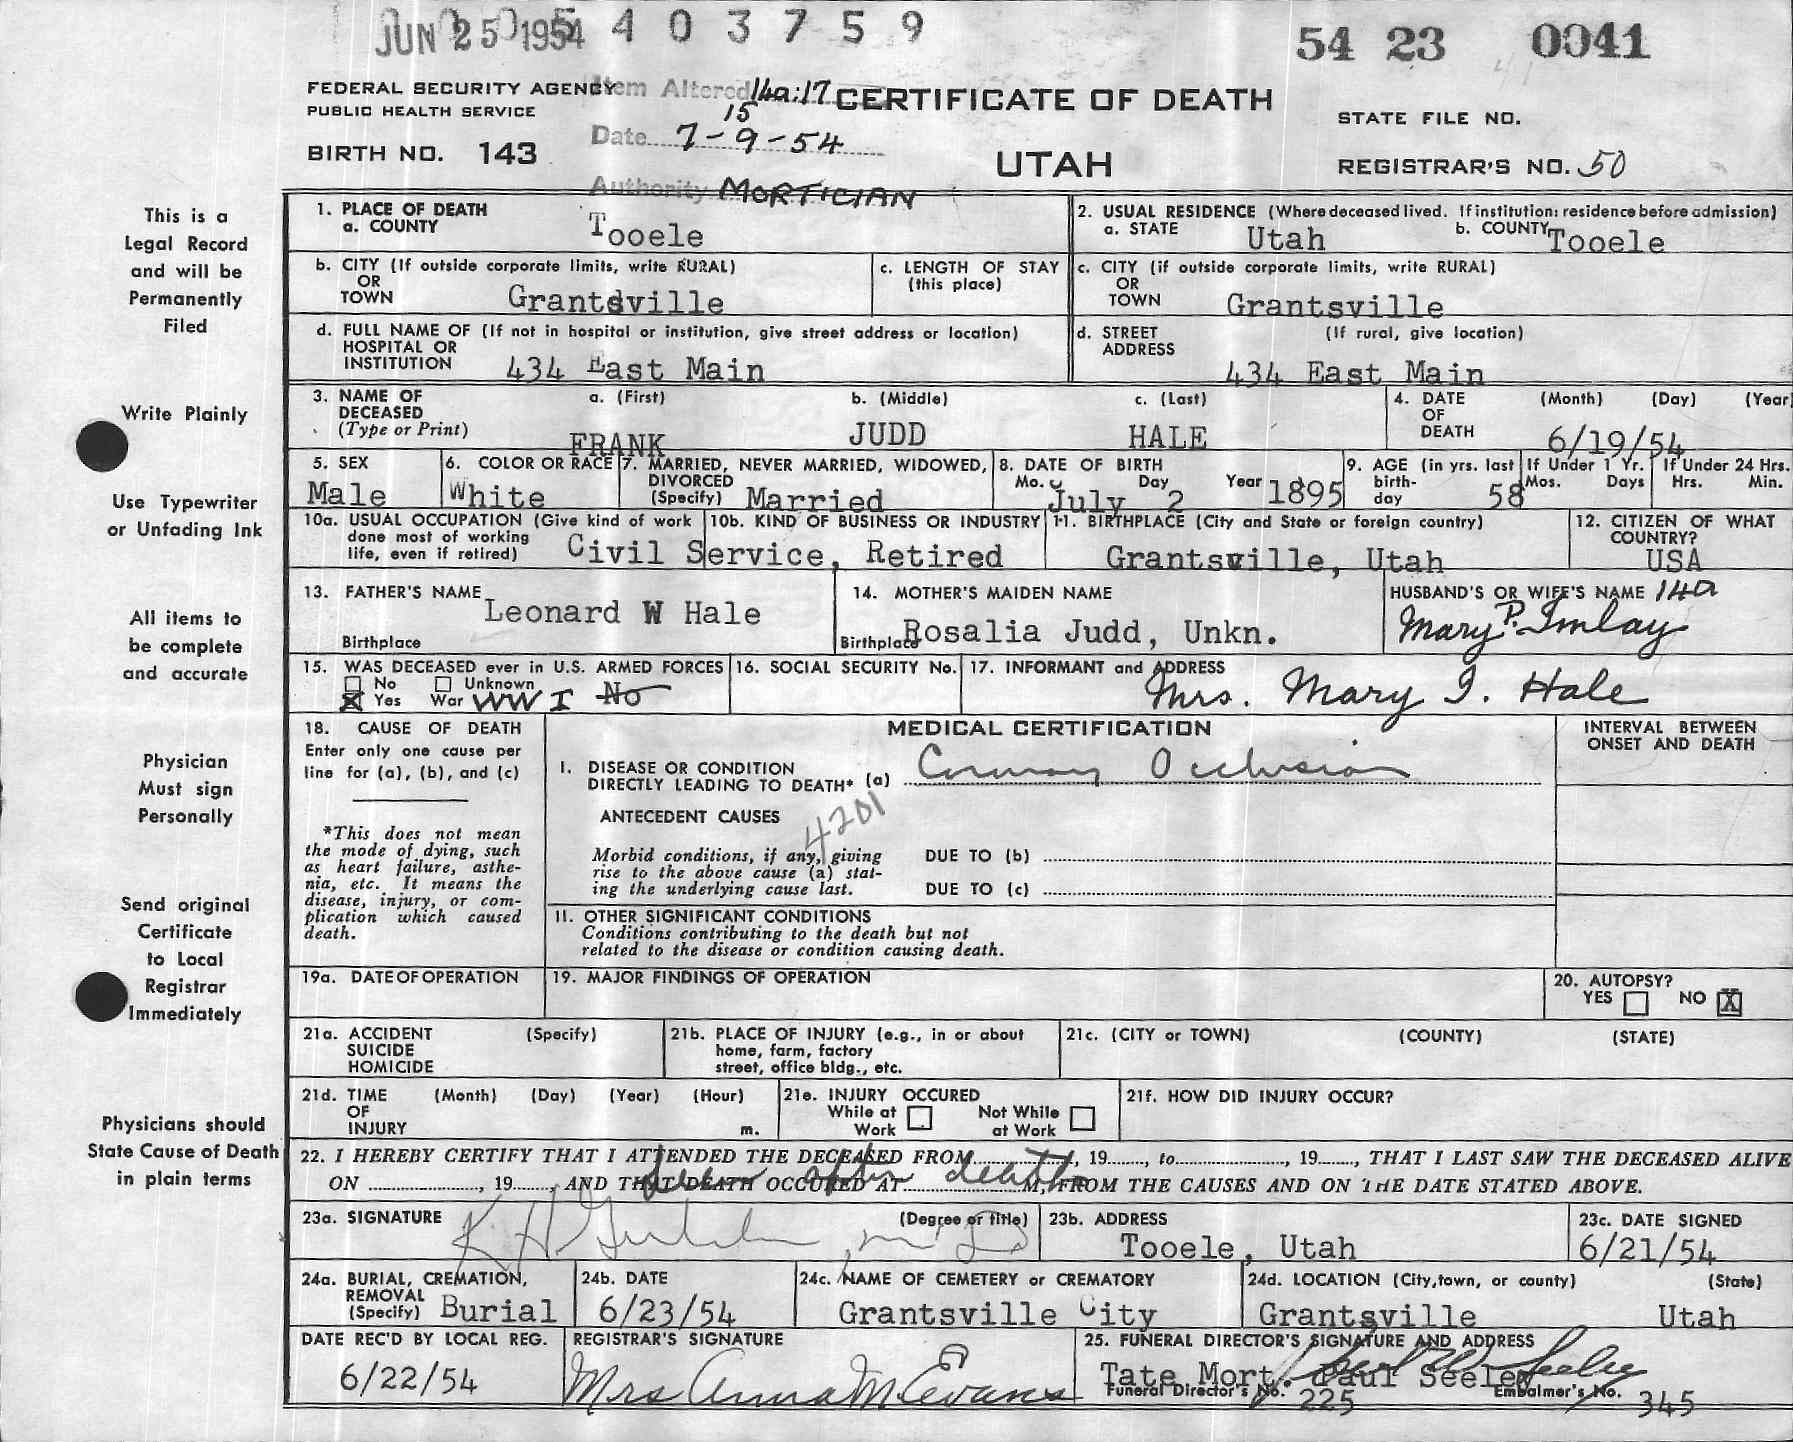 JUN 25 1954 5 4 0 3 7 5 9
54 23 0041
FEDERAL SECURITY AGENCY
PUBLIC HEALTH SERVICE
BIRTH NO. 143
Item Altered 14a:17
15
Date 7-9-54
Authority MORTICIAN
CERTIFICATE OF DEATH
UTAH
STATE FILE NO.
REGISTRAR'S NO. 50
This is a
Legal Record
and will be
Permanently
Filed
Write Plainly
Use Typewriter
or Unfading Ink
All items to
be complete
and accurate
Physician
Must sign
Personally
Send original
Certificate
to Local
Registrar
Immediately
Physicians should
State Cause of Death
in plain terms
1. PLACE OF DEATH
a. COUNTY Tooele
2. USUAL RESIDENCE (Where deceased lived. If institution: residence before admission)
a. STATE Utah b. COUNTY Tooele
b. CITY (If outside corporate limits, write RURAL)
OR
TOWN Grantsville
c. LENGTH OF STAY
(this place)
c. CITY (if outside corporate limits, write RURAL)
OR
TOWN Grantsville
d. FULL NAME OF (If not in hospital or institution, give street address or location)
HOSPITAL OR
INSTITUTION 434 East Main
d. STREET (If rural, give location)
ADDRESS
434 East Main
3. NAME OF DECEASED
(Type or Print)
a. (First) b. (Middle) c. (Last)
FRANK JUDD HALE
4. DATE OF DEATH (Month) (Day) (Year)
6/19/54
5. SEX
Male
6. COLOR OR RACE
White
7. MARRIED, NEVER MARRIED, WIDOWED,
DIVORCED
(Specify) Married
8. DATE OF BIRTH
Mo. Day Year
July 2 1895
9. AGE (in yrs. last birth-day 58
If Under 1 Yr.
Mos. Days
If Under 24 Hrs.
Hrs. Min.
10a. USUAL OCCUPATION (Give kind of work
done most of working
life, even if retired)
10b. KIND OF BUSINESS OR INDUSTRY
Civil Service, Retired
11. BIRTHPLACE (City and State or foreign country)
Grantsville, Utah
12. CITIZEN OF WHAT
COUNTRY?
USA
13. FATHER'S NAME
Leonard W Hale
Birthplace
14. MOTHER'S MAIDEN NAME
Birthplace Rosalia Judd, Unkn.
HUSBAND'S OR WIFE'S NAME 14a
Mary P. Imlay
15. WAS DECEASED ever in U.S. ARMED FORCES
No Unknown
X Yes War WW I No
16. SOCIAL SECURITY No.
17. INFORMANT and ADDRESS
Mrs. Mary I. Hale
18. CAUSE OF DEATH
Enter only one cause per
line for (a), (b), and (c)
*This does not mean
the mode of dying, such
as heart failure, asthe-
nia, etc. It means the
disease, injury, or com-
plication which caused
death.
MEDICAL CERTIFICATION
INTERVAL BETWEEN
ONSET AND DEATH
I. DISEASE OR CONDITION
DIRECTLY LEADING TO DEATH* (a) Coronary Occlusion
ANTECEDENT CAUSES
4201
Morbid conditions, if any, giving
rise to the above cause (a) stat-
ing the underlying cause last.
DUE TO (b)
DUE TO (c)
II. OTHER SIGNIFICANT CONDITIONS
Conditions contributing to the death but not
related to the disease or condition causing death.
19a. DATE OF OPERATION
19. MAJOR FINDINGS OF OPERATION
20. AUTOPSY?
YES NO X
21a. ACCIDENT (Specify)
SUICIDE
HOMICIDE
21b. PLACE OF INJURY (e.g., in or about
home, farm, factory
street, office bldg., etc.
21c. (CITY or TOWN) (COUNTY) (STATE)
21d. TIME (Month) (Day) (Year) (Hour)
OF
INJURY m.
21e. INJURY OCCURED
While at Work Not While at Work
21f. HOW DID INJURY OCCUR?
22. I HEREBY CERTIFY THAT I ATTENDED THE DECEASED FROM , 19 , to , 19 , THAT I LAST SAW THE DECEASED ALIVE
seen after death
ON , 19 , AND THAT DEATH OCCURED AT M, FROM THE CAUSES AND ON THE DATE STATED ABOVE.
23a. SIGNATURE (Degree or title)
K H M D
23b. ADDRESS
Tooele, Utah
23c. DATE SIGNED
6/21/54
24a. BURIAL, CREMATION,
REMOVAL
(Specify) Burial
24b. DATE
6/23/54
24c. NAME OF CEMETERY or CREMATORY
Grantsville City
24d. LOCATION (City, town, or county) (State)
Grantsville Utah
DATE REC'D BY LOCAL REG.
6/22/54
REGISTRAR'S SIGNATURE
Mrs Anna M. Evans
25. FUNERAL DIRECTOR'S SIGNATURE AND ADDRESS
Tate Mort. Paul Seeley
Funeral Director's No. 225 Embalmer's No. 345